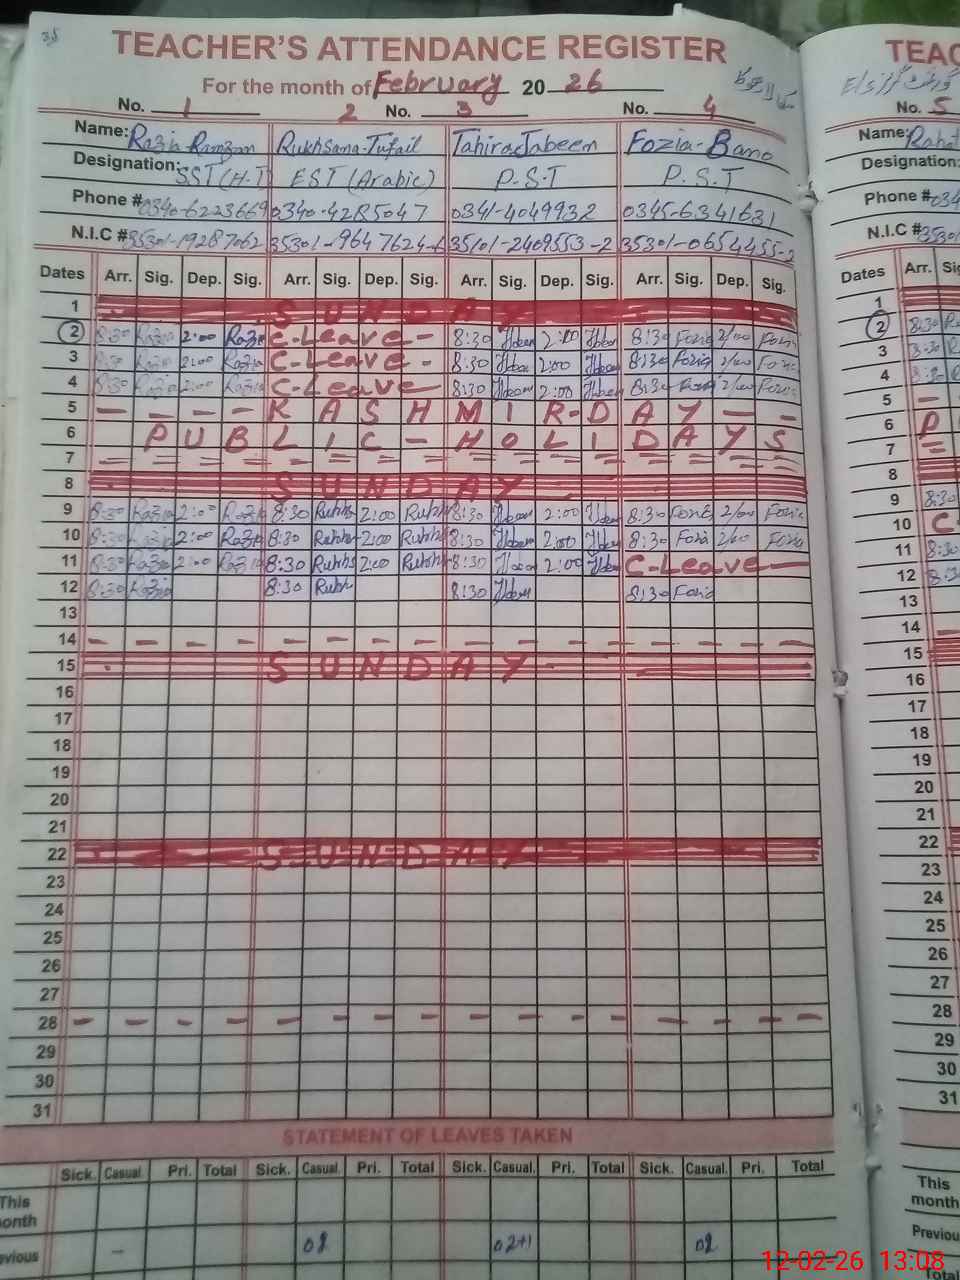 TEACHER'S ATTENDANCE REGISTER
For the month of February 20 26
No. 1 2 No. 3 No. 4
Name: Razia Ramzan Rukhsana-Tufail Tahira Jabeen Fozia-Bano
Designation: SST (H.T) EST (Arabic) P.S.T P.S.T
Phone # 0340-6223669 0340-4285047 0341-4049932 0345-6341631
N.I.C # 35301-19287062 35301-9647624-6 35101-2409553-2 35301-0654455-2
Dates Arr. Sig. Dep. Sig. Arr. Sig. Dep. Sig. Arr. Sig. Dep. Sig. Arr. Sig. Dep. Sig.
1 SUNDAY
2 8:30 Razia 2:00 Razia C-Leave - 8:30 Jbeen 2:00 Jbeen 8:30 Fozia 2/00 Fozia
3 8:30 Razia 2:00 Razia C-Leave - 8:30 Jbeen 2:00 Jbeen 8:30 Fozia 2/00 Fozia
4 8:30 Razia 2:00 Razia C-Leave - 8:30 Jbeen 2:00 Jbeen 8:30 Fozia 2/00 Fozia
5 - - - - KASHMIR-DAY - -
6 PUBLIC-HOLIDAYS
7
8 SUNDAY
9 8:30 Razia 2:00 Razia 8:30 Rukhs 2:00 Rukhs 8:30 Jbeen 2:00 Jbeen 8:30 Fozia 2/00 Fozia
10 8:30 Razia 2:00 Razia 8:30 Rukhs 2:00 Rukhs 8:30 Jbeen 2:00 Jbeen 8:30 Fozia 2/00 Fozia
11 8:30 Razia 2:00 Razia 8:30 Rukhs 2:00 Rukhs 8:30 Jbeen 2:00 Jbeen C-Leave-
12 8:30 Razia 8:30 Rukh 8:30 Jbeen 8:30 Fozia
13
14 - - - - - - - - - - - - - - - -
15 SUNDAY
16
17
18
19
20
21
22 SUNDAY
23
24
25
26
27
28 - - - - - - - - - - - - - - - -
29
30
31
STATEMENT OF LEAVES TAKEN
Sick. Casual. Pri. Total Sick. Casual. Pri. Total Sick. Casual. Pri. Total Sick. Casual. Pri. Total
This
onth
evious - 02 02+1 02
TEAC
No. 5
Name: Rahat
Designation:
Phone # 034
N.I.C # 35301
Dates Arr. Sig
1
2 8:30 R
3 8:30 R
4 8:30 R
5 -
6 P
7
8
9 8:30
10 C-
11 8:30
12 8:30
13
14
15
16
17
18
19
20
21
22
23
24
25
26
27
28
29
30
31
This
month
Previou
Total
12-02-26 13:08